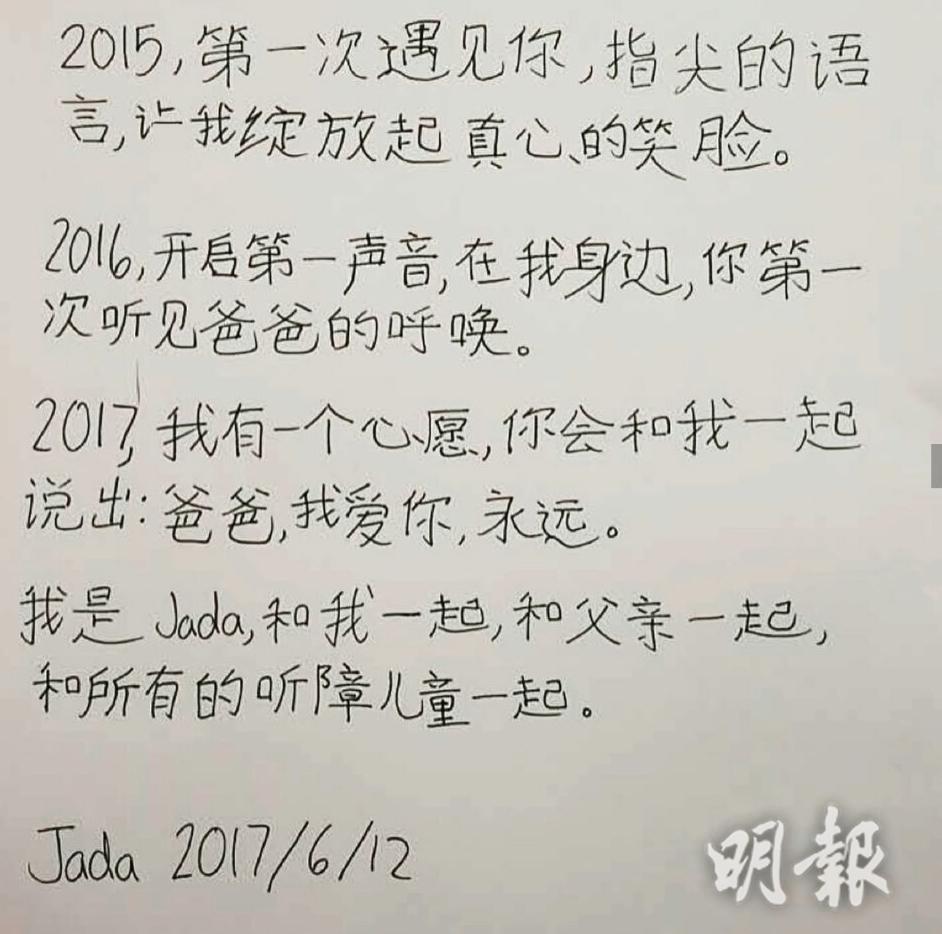 2015,第一次遇见你,指尖的语
言,让我绽放起真心的笑脸。
2016,开启第一声音,在我身边,你第一
次听见爸爸的呼唤。
2017,我有一个心愿,你会和我一起
说出:爸爸,我爱你,永远。
我是Jada,和我一起,和父亲一起,
和所有的听障儿童一起。
Jada 2017/6/12
明報